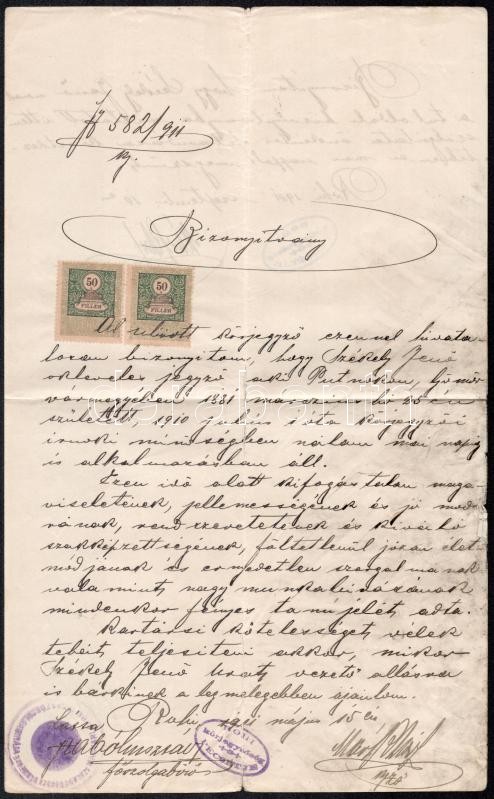 582/911
Bizonyitvány
50 50
FILLÉR FILLÉR
Alulirott körjegyző ezennel hivata-
losan bizonyitom, hogy Székely Jenő
okleveles jegyző, aki Putnokon, Gömör
vármegyében 1881 márczius hó én
született, 1910 julius óta körjegyzői
irnoki minőségben nálam mai napig
is alkalmazásban áll.
Ezen idő alatt kifogástalan maga-
viseletének, jellemességének és jó modo-
rának, rendszeretetének és kiváló
szakképzettségének, föltétlenül józan élet-
módjának és ernyedetlen szorgalmának
valamint nagy munkabirásának
mindenkor fényes tanujelét adta.
Kartársi kötelességet vélek
teljesiteni akkor, mikor
Székely Jenő urat vezető állásra
is bárkinek a legmelegebben ajánlom.
Rahó, 1911 május 15 én
Látta
főszolgabiró